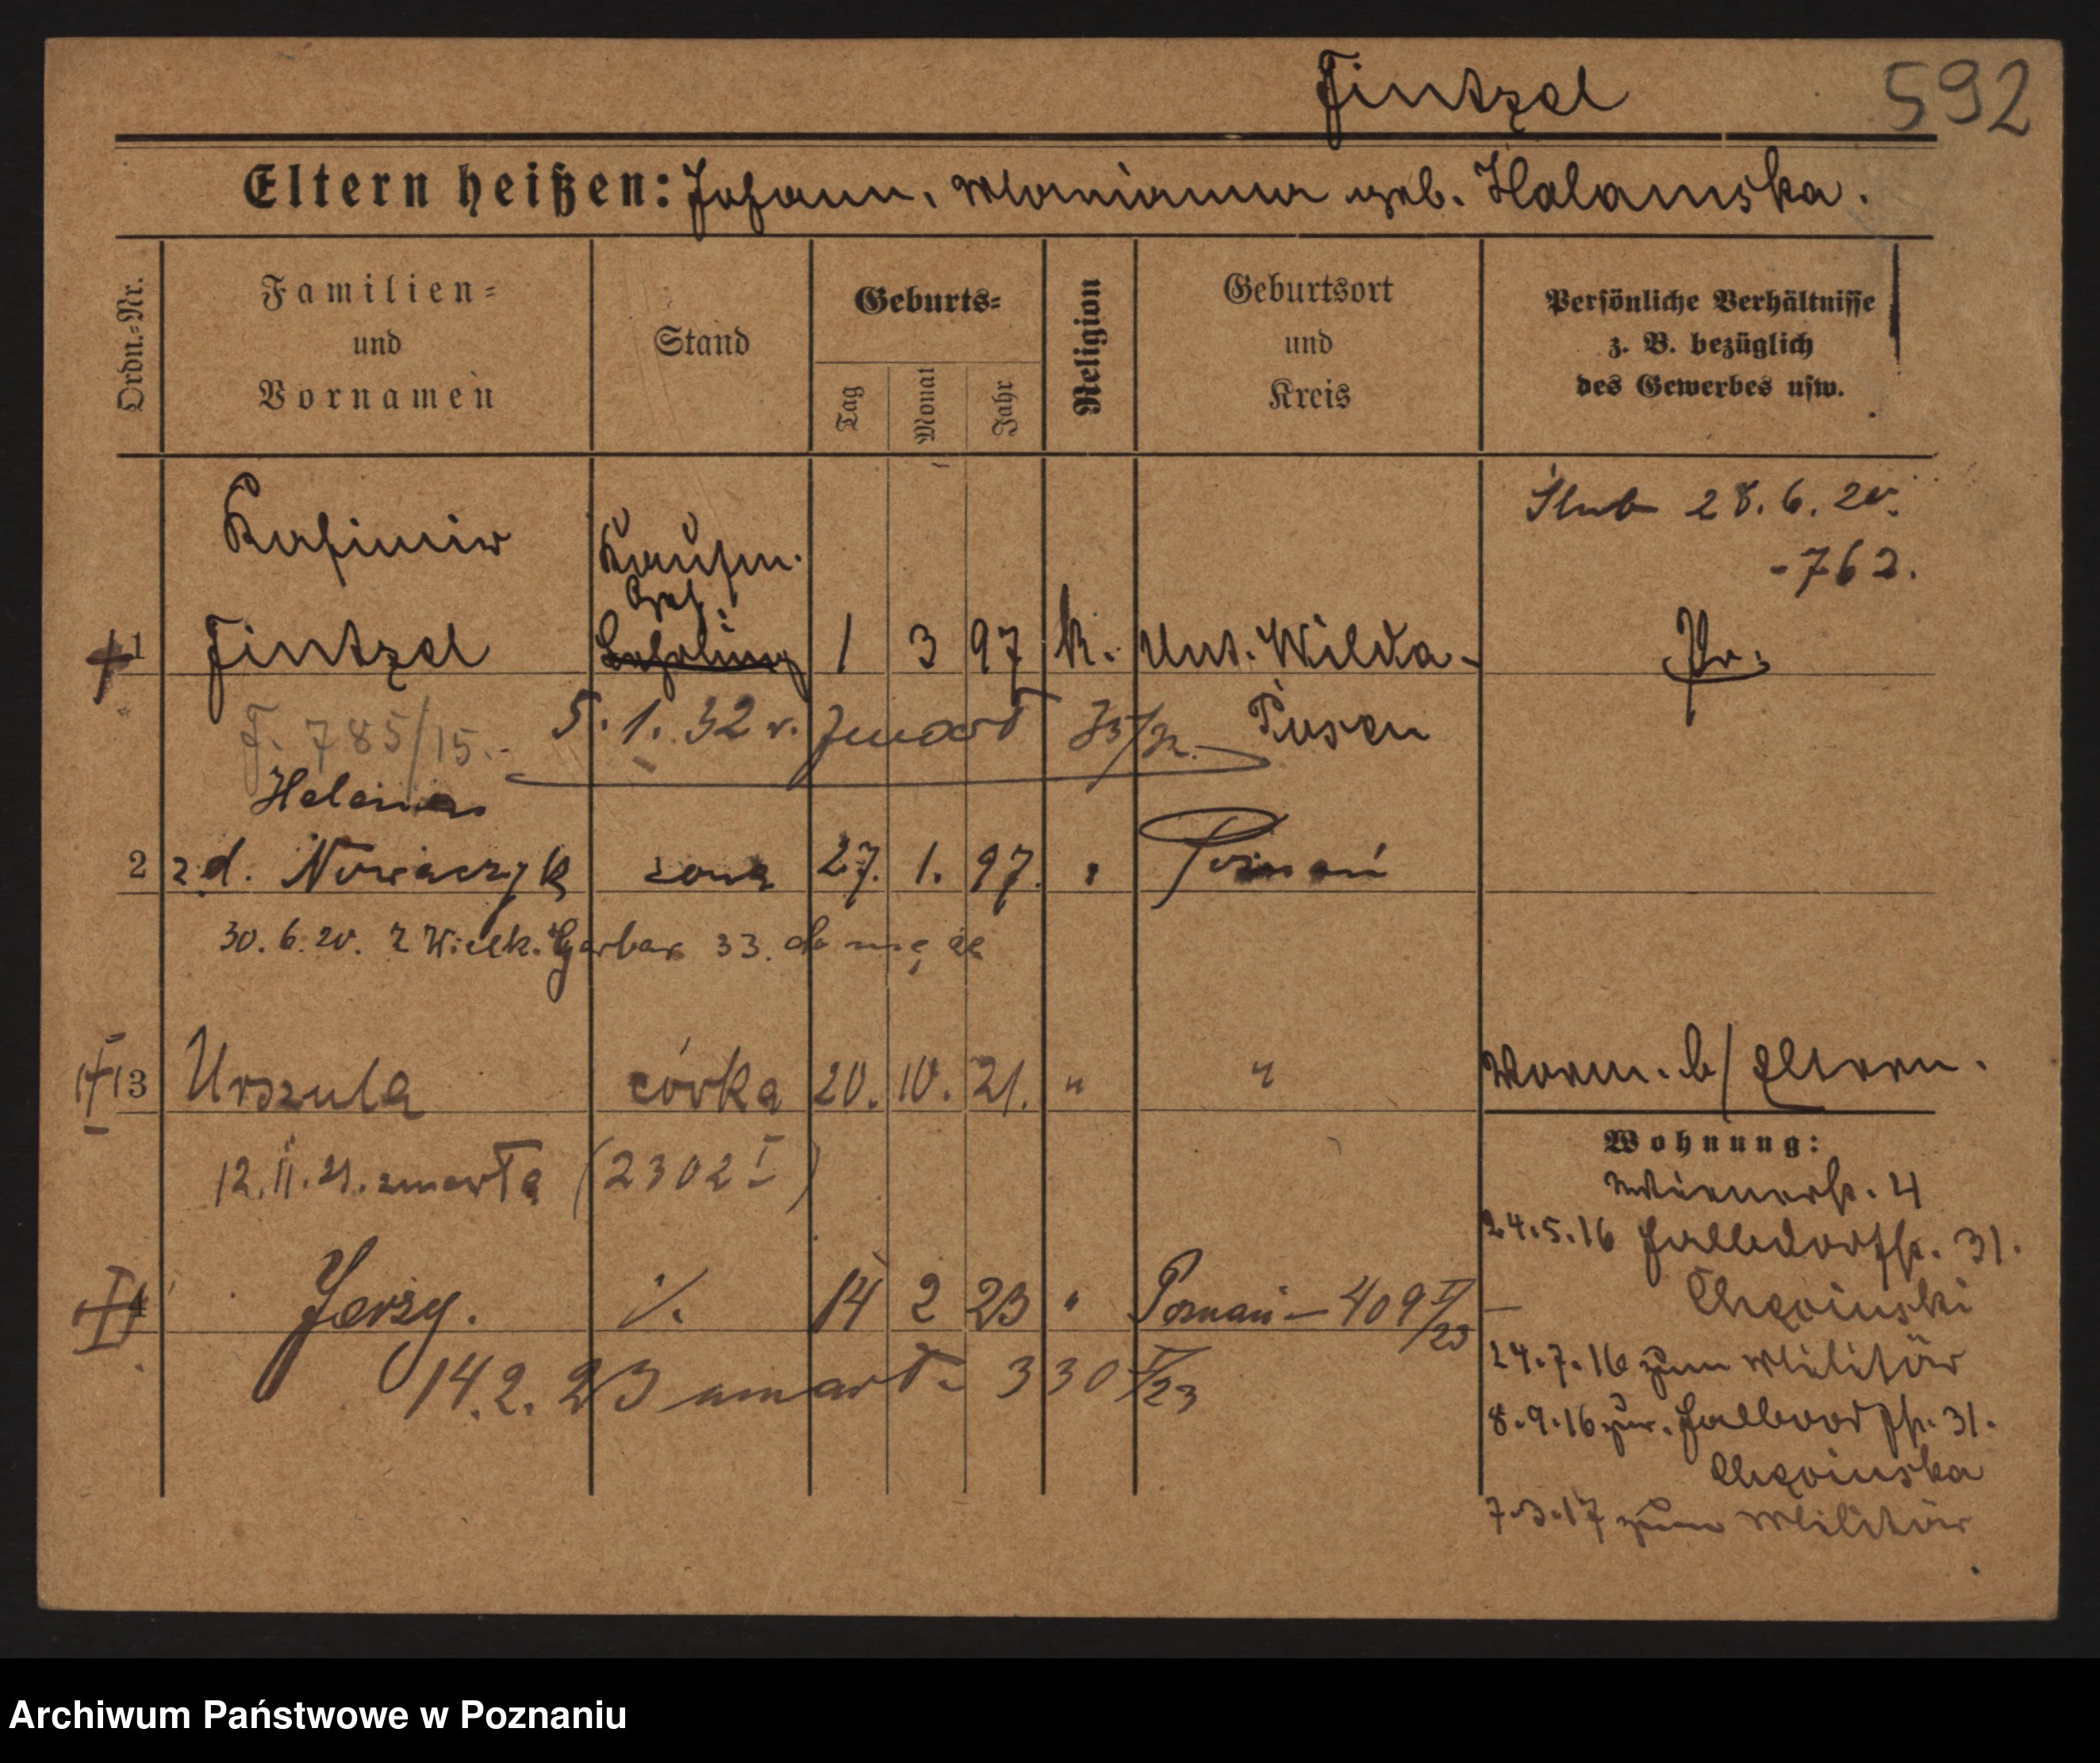 Fintzel 592
Eltern heißen: Johann, Marianna geb. Halamska.
Ordn.-Nr.
Familien-
und
Vornamen
Stand
Geburts-
Tag
Monat
Jahr
Religion
Geburtsort
und
Kreis
Persönliche Verhältnisse
z. B. bezüglich
des Gewerbes usw.
Ślub 28. 6. 20.
-762.
Kasimir Kaufm.
Geh.
1 Fintzel Lehrling 1 3 97 k. Unt. Wilda- Pr.
F. 785/15.- 5. 1. 32 r. zmarł 75/32. Posen
Helena
2 z d. Nowaczyk żona 27. 1. 97. " Poznań
30. 6. 20. z Wielk. Garbar 33. do męża
3 Urszula córka 20. 10. 21. " " Vorm. b/ Eltern.
12. 11. 21. zmarła (2302 I)
Wohnung:
Wienerstr. 4
24.5.16 31.
4 Jerzy. ·/. 14 2 23 " Poznań – 409 I/23
14. 2. 23 umarł - 330 I/23
24.7.16 zum Militär
8.9.16 zur. 31.
7.3.17 zum Militär
Archiwum Państwowe w Poznaniu